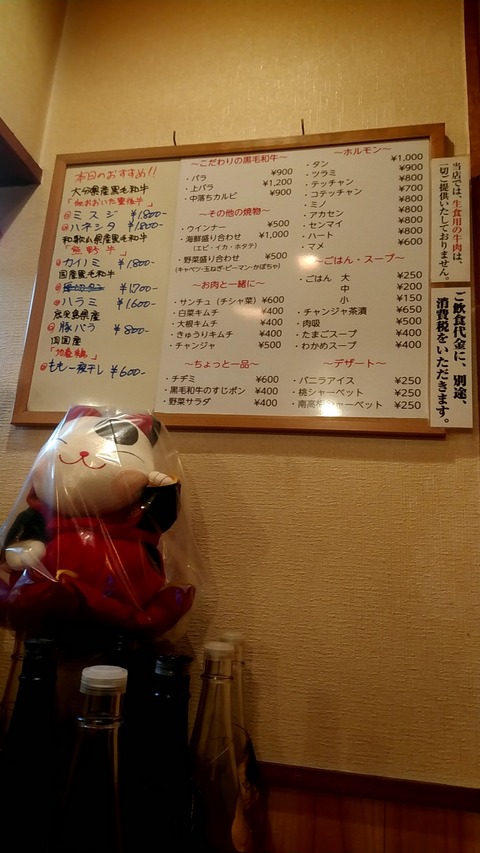 本日のおすすめ!!
大分県産黒毛和牛
ミスジ ¥1800-
ハネシタ ¥1800-
和歌山県産黒毛和牛
「熊野牛」
カイノミ ¥1800-
国産黒毛和牛
¥1700-
ハラミ ¥1600-
鹿児島県産
豚バラ ¥800-
四国産
もも一夜干し ¥600-
～こだわりの黒毛和牛～
・バラ ¥900
・上バラ ¥1,200
・中落ちカルビ ¥900
～その他の焼物～
・ウインナー ¥500
・海鮮盛り合わせ ¥1,000
(エビ・イカ・ホタテ)
・野菜盛り合わせ ¥500
(キャベツ・玉ねぎ・ピーマン・かぼちゃ)
～お肉と一緒に～
・サンチュ(チシャ菜) ¥600
・白菜キムチ ¥400
・大根キムチ ¥400
・きゅうりキムチ ¥400
・チャンジャ ¥500
～ちょっと一品～
・チヂミ ¥600
・黒毛和牛のすじポン ¥400
・野菜サラダ ¥400
～ホルモン～
・タン ¥1,000
・ツラミ ¥900
・テッチャン ¥800
・コテッチャン ¥700
・ミノ ¥800
・アカセン ¥800
・センマイ ¥800
・ハート ¥600
・マメ ¥600
～ごはん・スープ～
・ごはん 大 ¥250
中 ¥200
小 ¥150
・チャンジャ茶漬 ¥650
・肉吸 ¥500
・たまごスープ ¥400
・わかめスープ ¥400
～デザート～
・バニラアイス ¥250
・桃シャーベット ¥250
・南高梅シャーベット ¥250
当店では、生食用の牛肉は、
一切ご提供いたしておりません。
ご飲食代金に、別途、
消費税をいただきます。